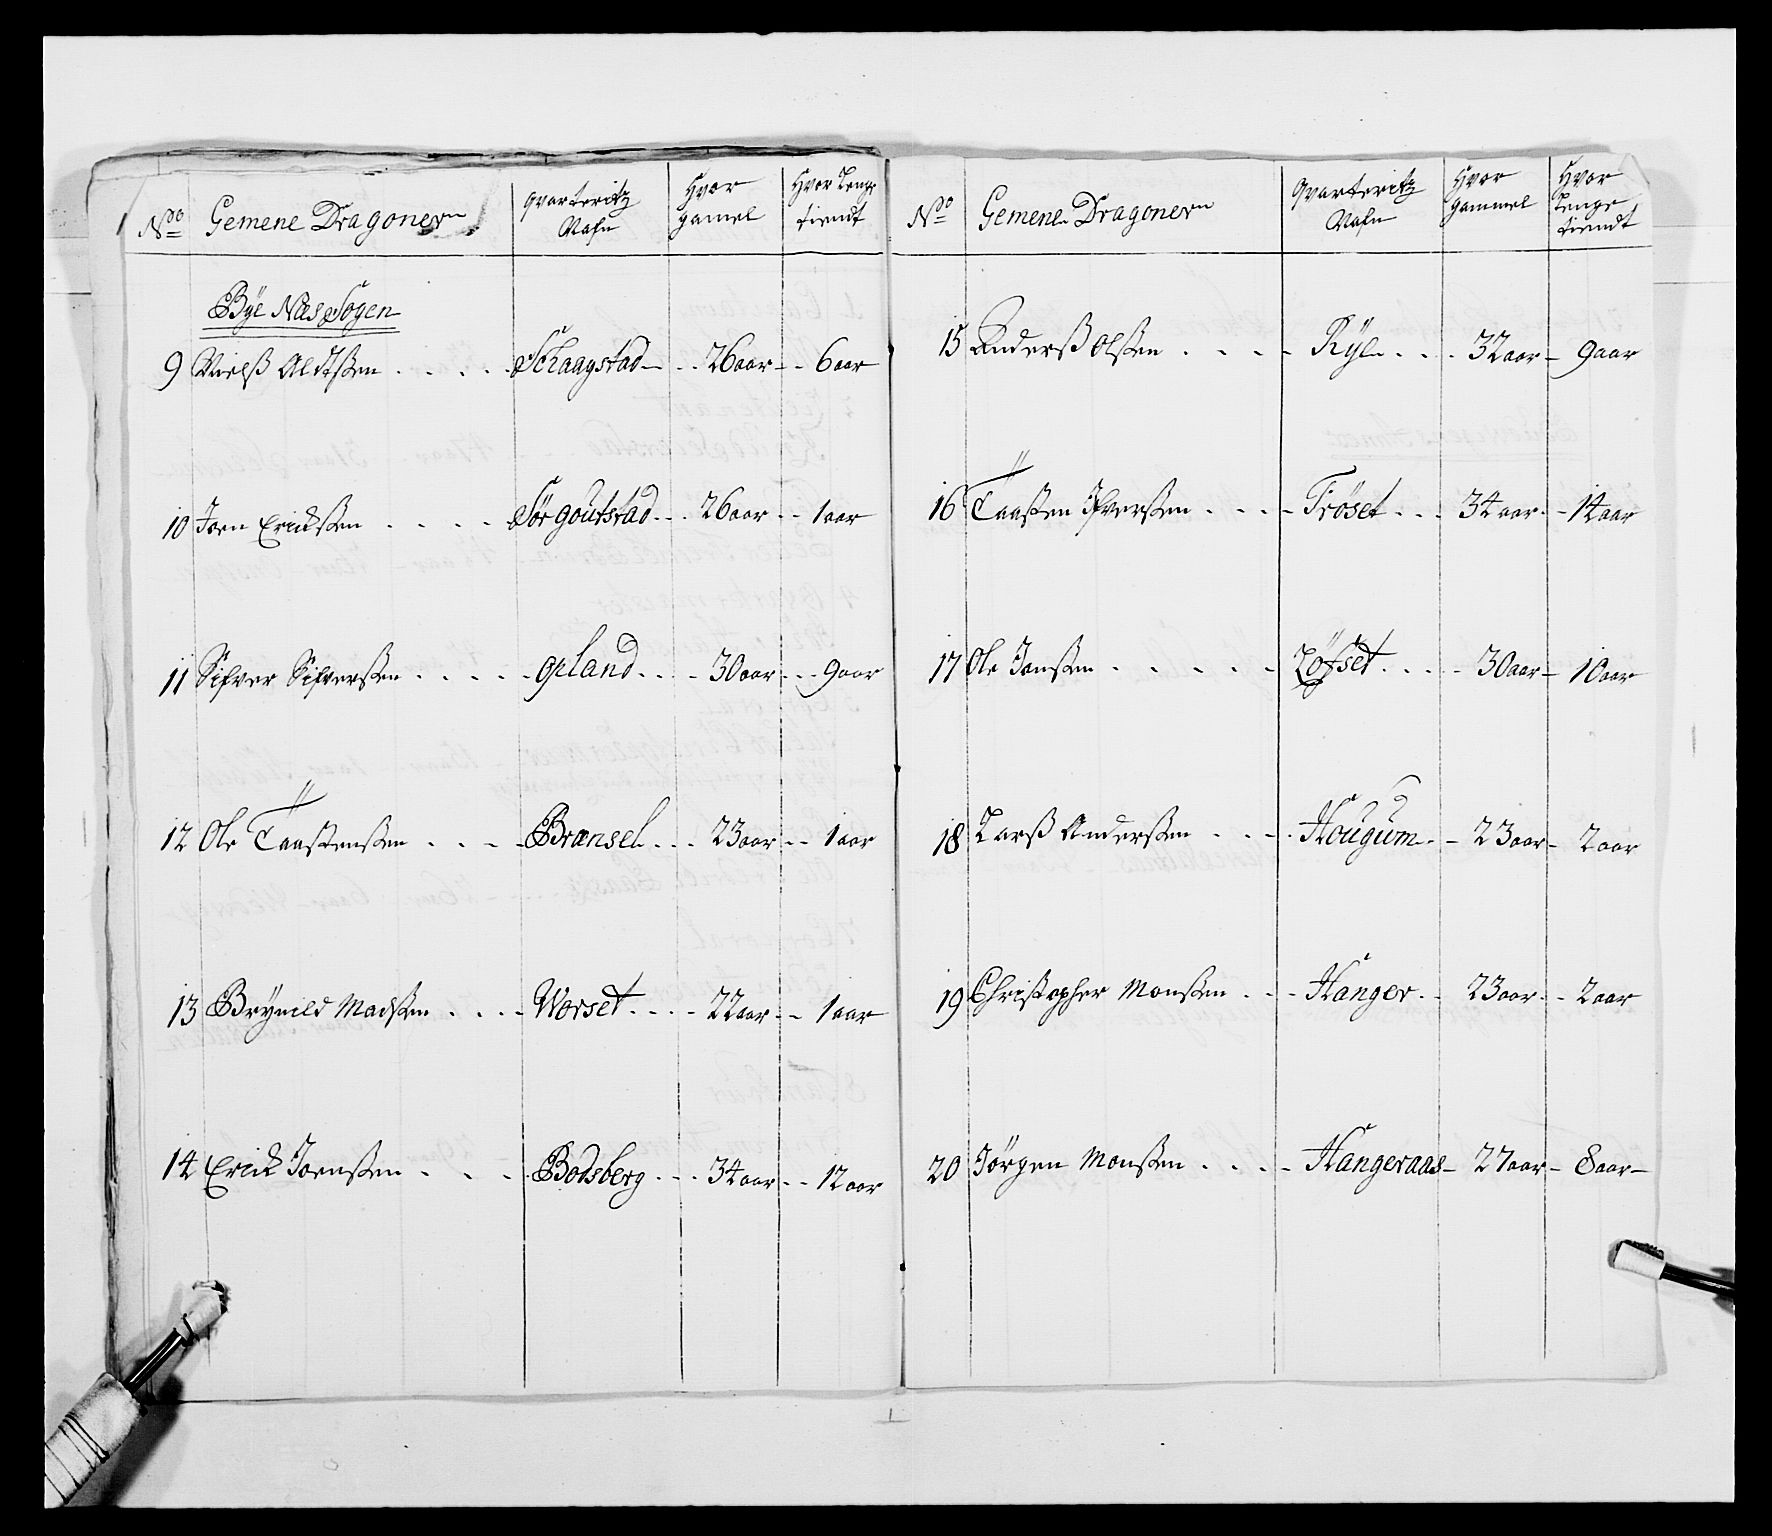 No Gemene Dragonern Qvarteritz Nafn Hvor gamel Hvor lenge tiendt
Bÿe Næs Sogen
9 Nielß Aldtßen . . . . . Schaagstad - . . 26 aar - - 6 aar
10 Joen Erichßen . . . . Sörgoutstad . . . 26 aar - - 1 aar
11 Sifver Sifverßen . . . . . Opland . . . - 30 aar - . . 9 aar
12 Ole Taaßtenßen . . . . Brænsel . . . 23 aar - - 1 aar
13 Brÿnild Madßen . . . . Worset . . . - 22 aar - - 1 aar
14 Erich Joenßen . . . . Bodsberg . . . 34 aar - - 12 aar
No Gemene Dragonern Qvarteritz Nafn Hvor gammel Hvor lenge tiendt
15 Anderß Olßen . . . . Rÿe . . . 32 aar - 9 aar
16 Taaßen Ifverßen . . . . Fröset . . . 34 aar - 14 aar
17 Ole Jonßen . . . . . Löfset . . . - 30 aar - 10 aar
18 Larß Anderßen . . . . Hougum . - 23 aar - 2 aar
19 Christopher Monßen . . . Hanger . . 23 aar - 2 aar
20 Jörgen Monßen . . . . Hangeraas - 27 aar - 8 aar -